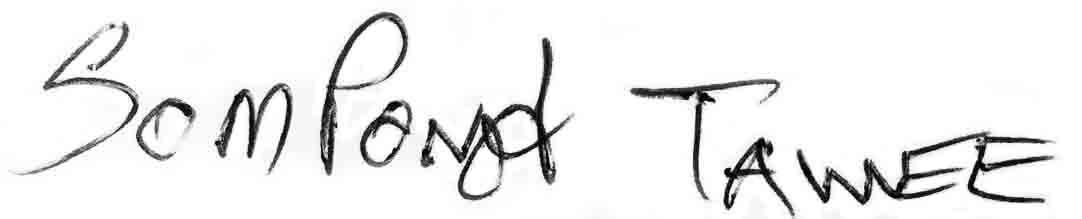 Sompond TAWEE